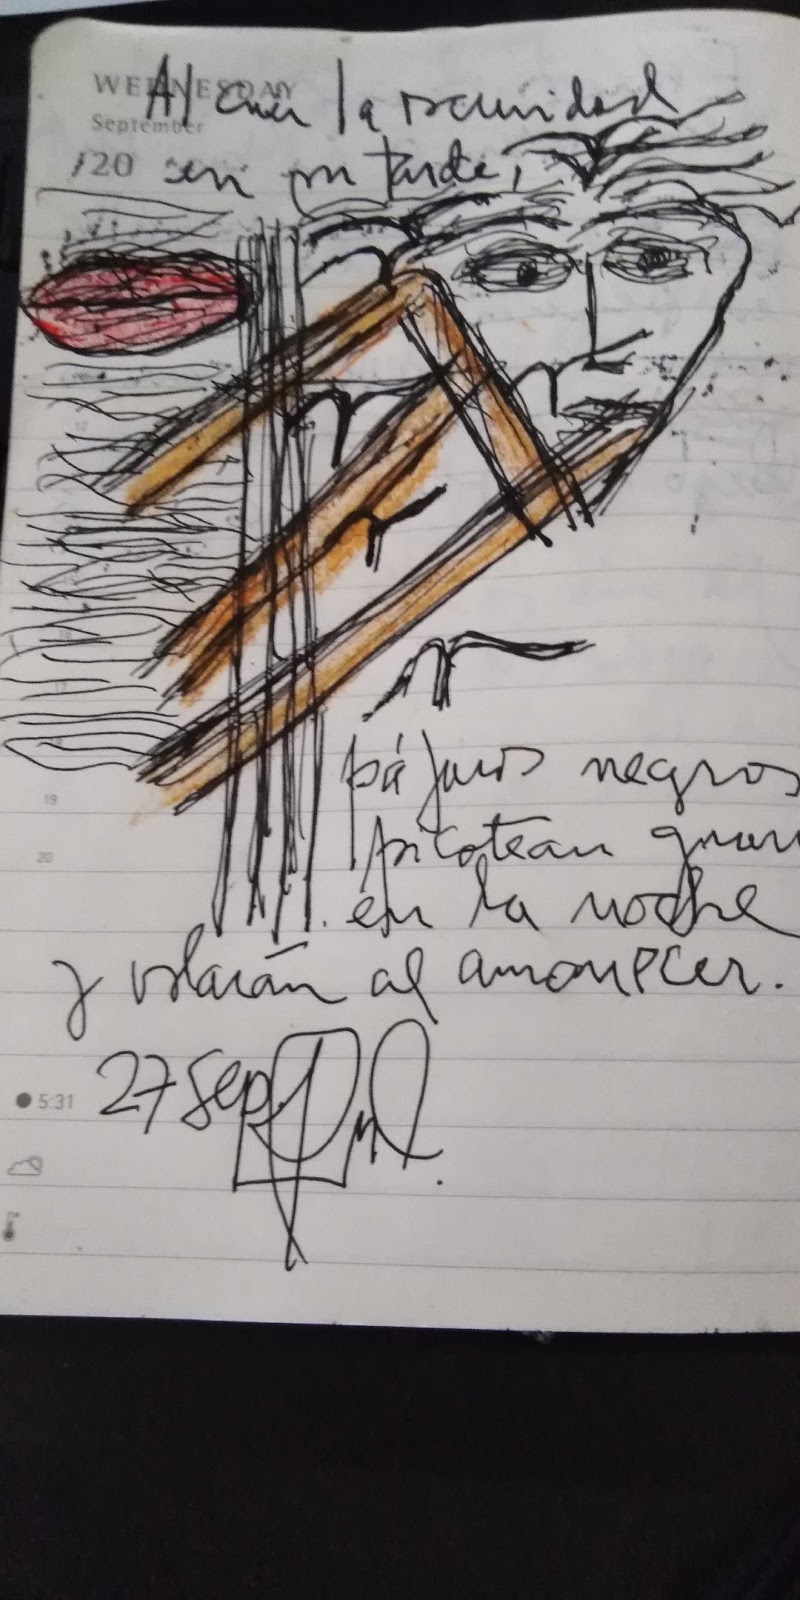 WEDNESDAY
Al caer la oscuridad
September
20 en mi tarde,
12
17
pájaros negros
19
picotean
20
en la noche
y volarán al amanecer.
27 Sep
5:31